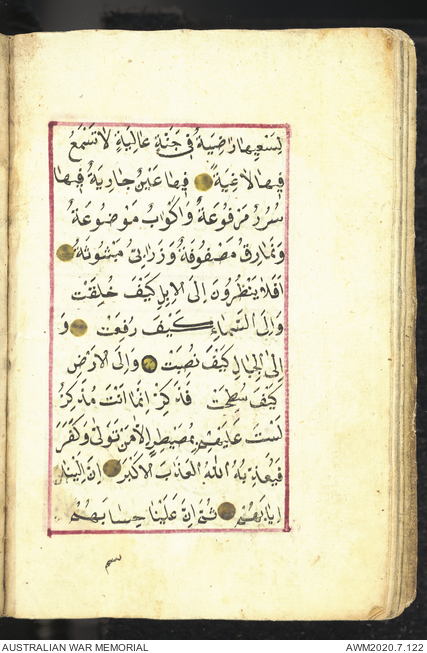 لِسَعْيِهَا رَاضِيَةٌ فِي جَنَّةٍ عَالِيَةٍ لَا تَسْمَعُ
فِيهَا لَاغِيَةً فِيهَا عَيْنٌ جَارِيَةٌ فِيهَا
سُرُرٌ مَرْفُوعَةٌ وَأَكْوَابٌ مَوْضُوعَةٌ
وَنَمَارِقُ مَصْفُوفَةٌ وَزَرَابِيُّ مَبْثُوثَةٌ
أَفَلَا يَنْظُرُونَ إِلَى الْإِبِلِ كَيْفَ خُلِقَتْ
وَإِلَى السَّمَاءِ كَيْفَ رُفِعَتْ وَ
إِلَى الْجِبَالِ كَيْفَ نُصِبَتْ وَإِلَى الْأَرْضِ
كَيْفَ سُطِحَتْ فَذَكِّرْ إِنَّمَا أَنْتَ مُذَكِّرٌ
لَسْتَ عَلَيْهِمْ بِمُصَيْطِرٍ إِلَّا مَنْ تَوَلَّى وَكَفَرَ
فَيُعَذِّبُهُ اللَّهُ الْعَذَابَ الْأَكْبَرَ إِنَّ إِلَيْنَا
إِيَابَهُمْ ثُمَّ إِنَّ عَلَيْنَا حِسَابَهُمْ
AUSTRALIAN WAR MEMORIAL
AWM2020.7.122